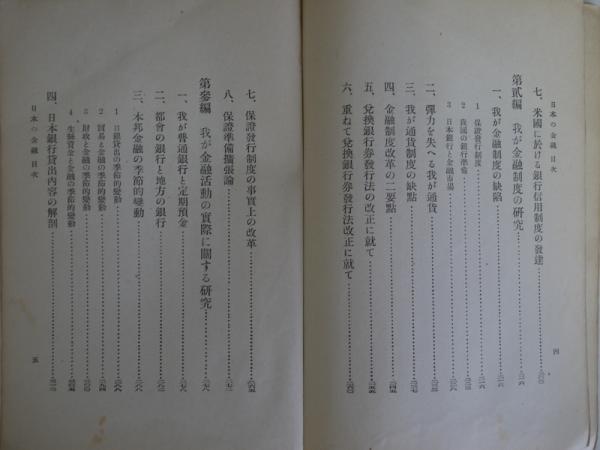 日本の金融 目次
七、米國に於ける銀行信用制度の發達
第貳編 我が金融制度の研究
一、我が金融制度の缺陷
1 保證發行制度
2 我國の銀行準備
3 日本銀行と金融市場
二、彈力を失へる我が通貨
三、我が通貨制度の缺點
四、金融制度改革の二要點
五、兌換銀行券發行法の改正に就て
六、重ねて兌換銀行券發行法改正に就て
四
七、保證發行制度の事實上の改革
八、保證準備擴張論
第參編 我が金融活動の實際に關する研究
一、我が普通銀行と定期預金
二、都會の銀行と地方の銀行
三、本邦金融の季節的變動
1 日銀貸出の季節的變動
2 貿易と金融の季節的變動
3 財政と金融の季節的變動
4 生絲資金と金融の季節的變動
四、日本銀行貸出內容の解剖
日本の金融 目次
五